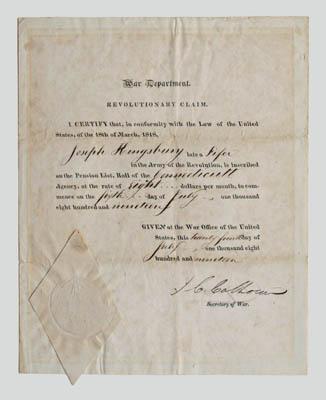 War Department.
REVOLUTIONARY CLAIM.
I CERTIFY that, in conformity with the Law of the United
States, of the 18th of March, 1818,
Joseph Kingsbury late a Fifer
in the Army of the Revolution, is inscribed
on the Pension List, Roll of the Connecticutt
Agency, at the rate of eight dollars per month, to com-
mence on the day of July one thousand
eight hundred and nineteen
GIVEN at the War Office of the United
States, this twenty day of
July one thousand eight
hundred and nineteen
J. C. Calhoun
Secretary of War.